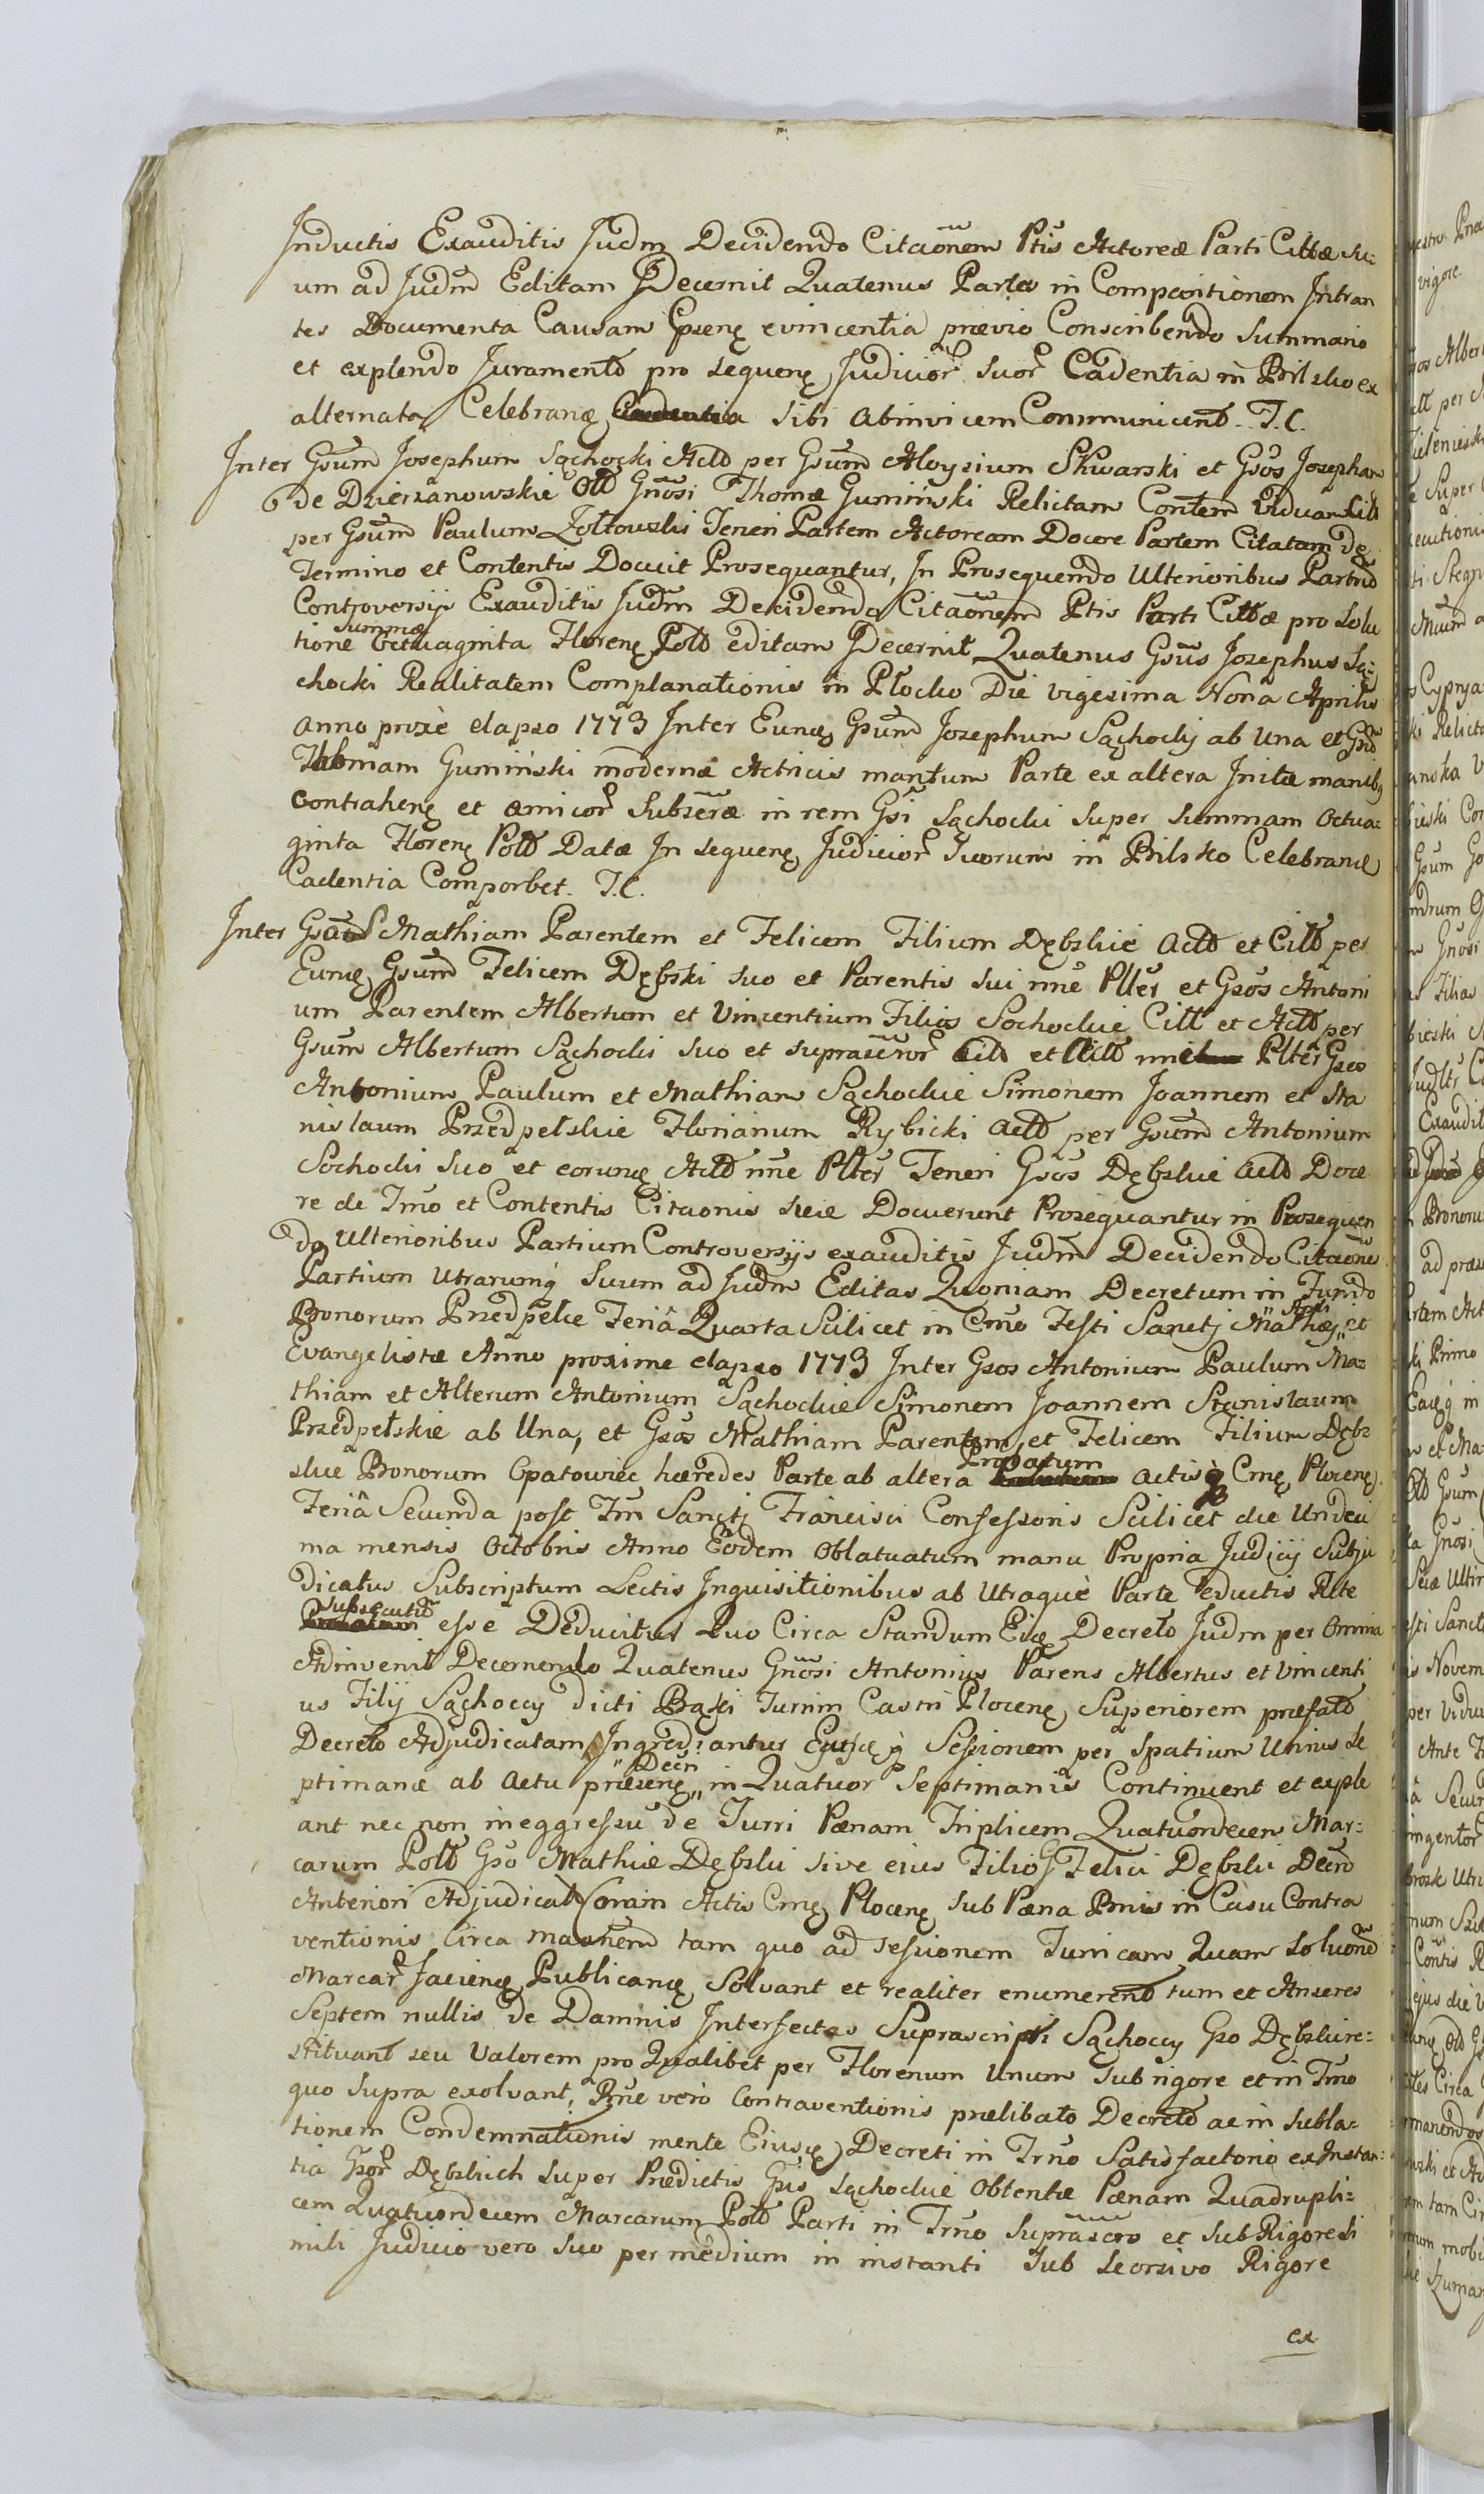 Inductis Exauditis Judm Decidendo Citaōnem Ptis Actoreæ Parti Cittæ su-
um ad Judm Editam Decernit Quatenus Partes in Compositionem Intran
tes Documenta Causam evincentia prævio Conscribendo Summario
et explendo Juramento pro sequenꝫ Judicior Suor Cadentia in Bilsko ex
alternata Celebranꝫ sibi abinvicem Communicent. T.C.
Inter Gsum Josephum Sąchocki Actō per Gsum Aloysium Skwarski et Gsos Josepham
de Dzierzanowskie Olō Gnosi Thomæ Guminski Relictam Contem Viduam Citt
per Gsum Paulum Zołtowski Teneri Partem Actoream Docere Partem Citatam de
Termino et Contentis Docuit Prosequantur, In Prosequendo Ulterioribus Partium
Controversijs Exauditis Judm Decidendo Citaōnem Ptis Parti Cittæ pro Solu
tione summæ Octuaginta Florenꝫ Polō editam Decernit Quatenus Gsus Josephus Są-
chocki Realitatem Complanationis in Płocko Die vigesima Nona Aprilis
Anno proxe elapso 1773 Inter Eunꝫ Gsum Josephum Sąchocky ab Una et Gsō
Thomam Guminski modernæ Actricis maritum Parte ex altera Initæ manibꝫ
contrahenꝫ et amicor Subscræ in rem Gsi Sąchocki super summam Octua-
ginta Florenꝫ Polō Datæ In sequenꝫ Judicior Suorum in Bilsko Celebranꝫ
Cadentia Comportet. T.C.
Inter Gsos Mathiam Parentem et Felicem Filium Dębskie Actō et Citō per
Eunꝫ Gsum Felicem Dębski suo et Parentis sui nne Plter et Gsos Antoni
um Parentem Albertum et Vincentium Filios Sochockie Citt et Actō per
Gsum Albertum Sąchocki suo et supra Citō et Actō nne Plter Gsos
Antonium Paulum et Mathiam Sąchockie Simonem Joannem et Sta
nislaum Przedpełskie Florianum Rybicki Actō per Gsum Antonium
Sochocki suo et eorunꝫ Actō nne Plter Teneri Gsos Dębskie Actō Doce
re de Tmo et Contentis Citaonis suæ Docuerunt Prosequantur in Prosequen
do Ulterioribus Partium Controversijs exauditis Judm Decidendo Citaōne
Partium Utrarumq Suum ad Judm Editas Quoniam Decretum in Fundo
Bonorum Przedpełce Feriâ Quarta Scilicet in Cmo Festi Sancti Mathæj Apli et
Evangelistæ Anno proxime elapso 1773 Inter Gsos Antonium Paulum Ma-
thiam et Alterum Antonium Sąchockie Simonem Joannem Stanislaum
Przedpełskie ab Una, et Gsos Mathiam Parentem et Felicem Filium Dęb-
skie Bonorum Opatowiec hæredes Parte ab altera Probatum actisq Cmꝫ Plocenꝫ
Feriâ Secunda post Fm Sancti Francisci Confessoris Scilicet die Undeci
ma mensis Octobris Anno Eodem Oblatuatum manu Propria Judicij Subju
dicatus Subscriptum Lectis Inquisitionibus ab Utraque Parte eductis Rite
subsecutū esse Deducitur Quo Circa Standum Eiꝫ Decreto Judm per Omnia
Adinvenit Decernendo Quatenus Gnosi Antonius Parens Albertus et Vincenti
us Filij Sąchoccy dicti Bąki Turrim Castri Plocenꝫ Superiorem præfatō
Decreto Adjudicatam Ingrediantur Ejusꝫq Sessionem per Spatium Unius Se
ptimanæ ab actu præsenꝫ Decr in Quatuor Septimanis Continuent et exple
ant nec non in eggressu de Turri Pænam Triplicem Quatuordecem Mar-
carum Polō Gso Mathiæ Dębski sive ejus Filio G Felici Dębski Decro
Anteriori Adjudicat Coram Actis Cmꝫ Plocenꝫ sub Pæna Bnis in Casu Contra
ventionis Circa tam quo ad sessionem Turricam Quam Soluone
Marcar Facienꝫ Publicanꝫ Solvant et realiter enumerent tum et Anseres
Septem nullis de Damnis Interfectas Suprascripti Sąchoccy Gso Dębski re-
stituant seu Valorem pro Qualibet per Florenum Unum sub rigore et in Tmo
quo supra exolvant, Bne vero Contraventionis prælibato Decreto ac in subla-
tionem Condemnationis mente Eiusꝫ Decreti in Trno Satisfactorio ex Instan-
tia Gsor Dębskich super Prædictis Gsis Sąchockie Obtentæ Pænam Quadrupli-
cem Quatuordecem Marcarum Polō Parti in Trno suprascro et sub Rigore si
mili Judicio vero suo per medium in instanti sub seorsivo Rigore
ex